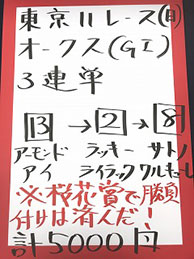 東京11レース(日)
オークス(GI)
3連単
13→2→8
アーモンド ラッキー サトノ
アイ ライラック ワルキューレ
※桜花賞で勝負
付けは済んだ!
計5000円